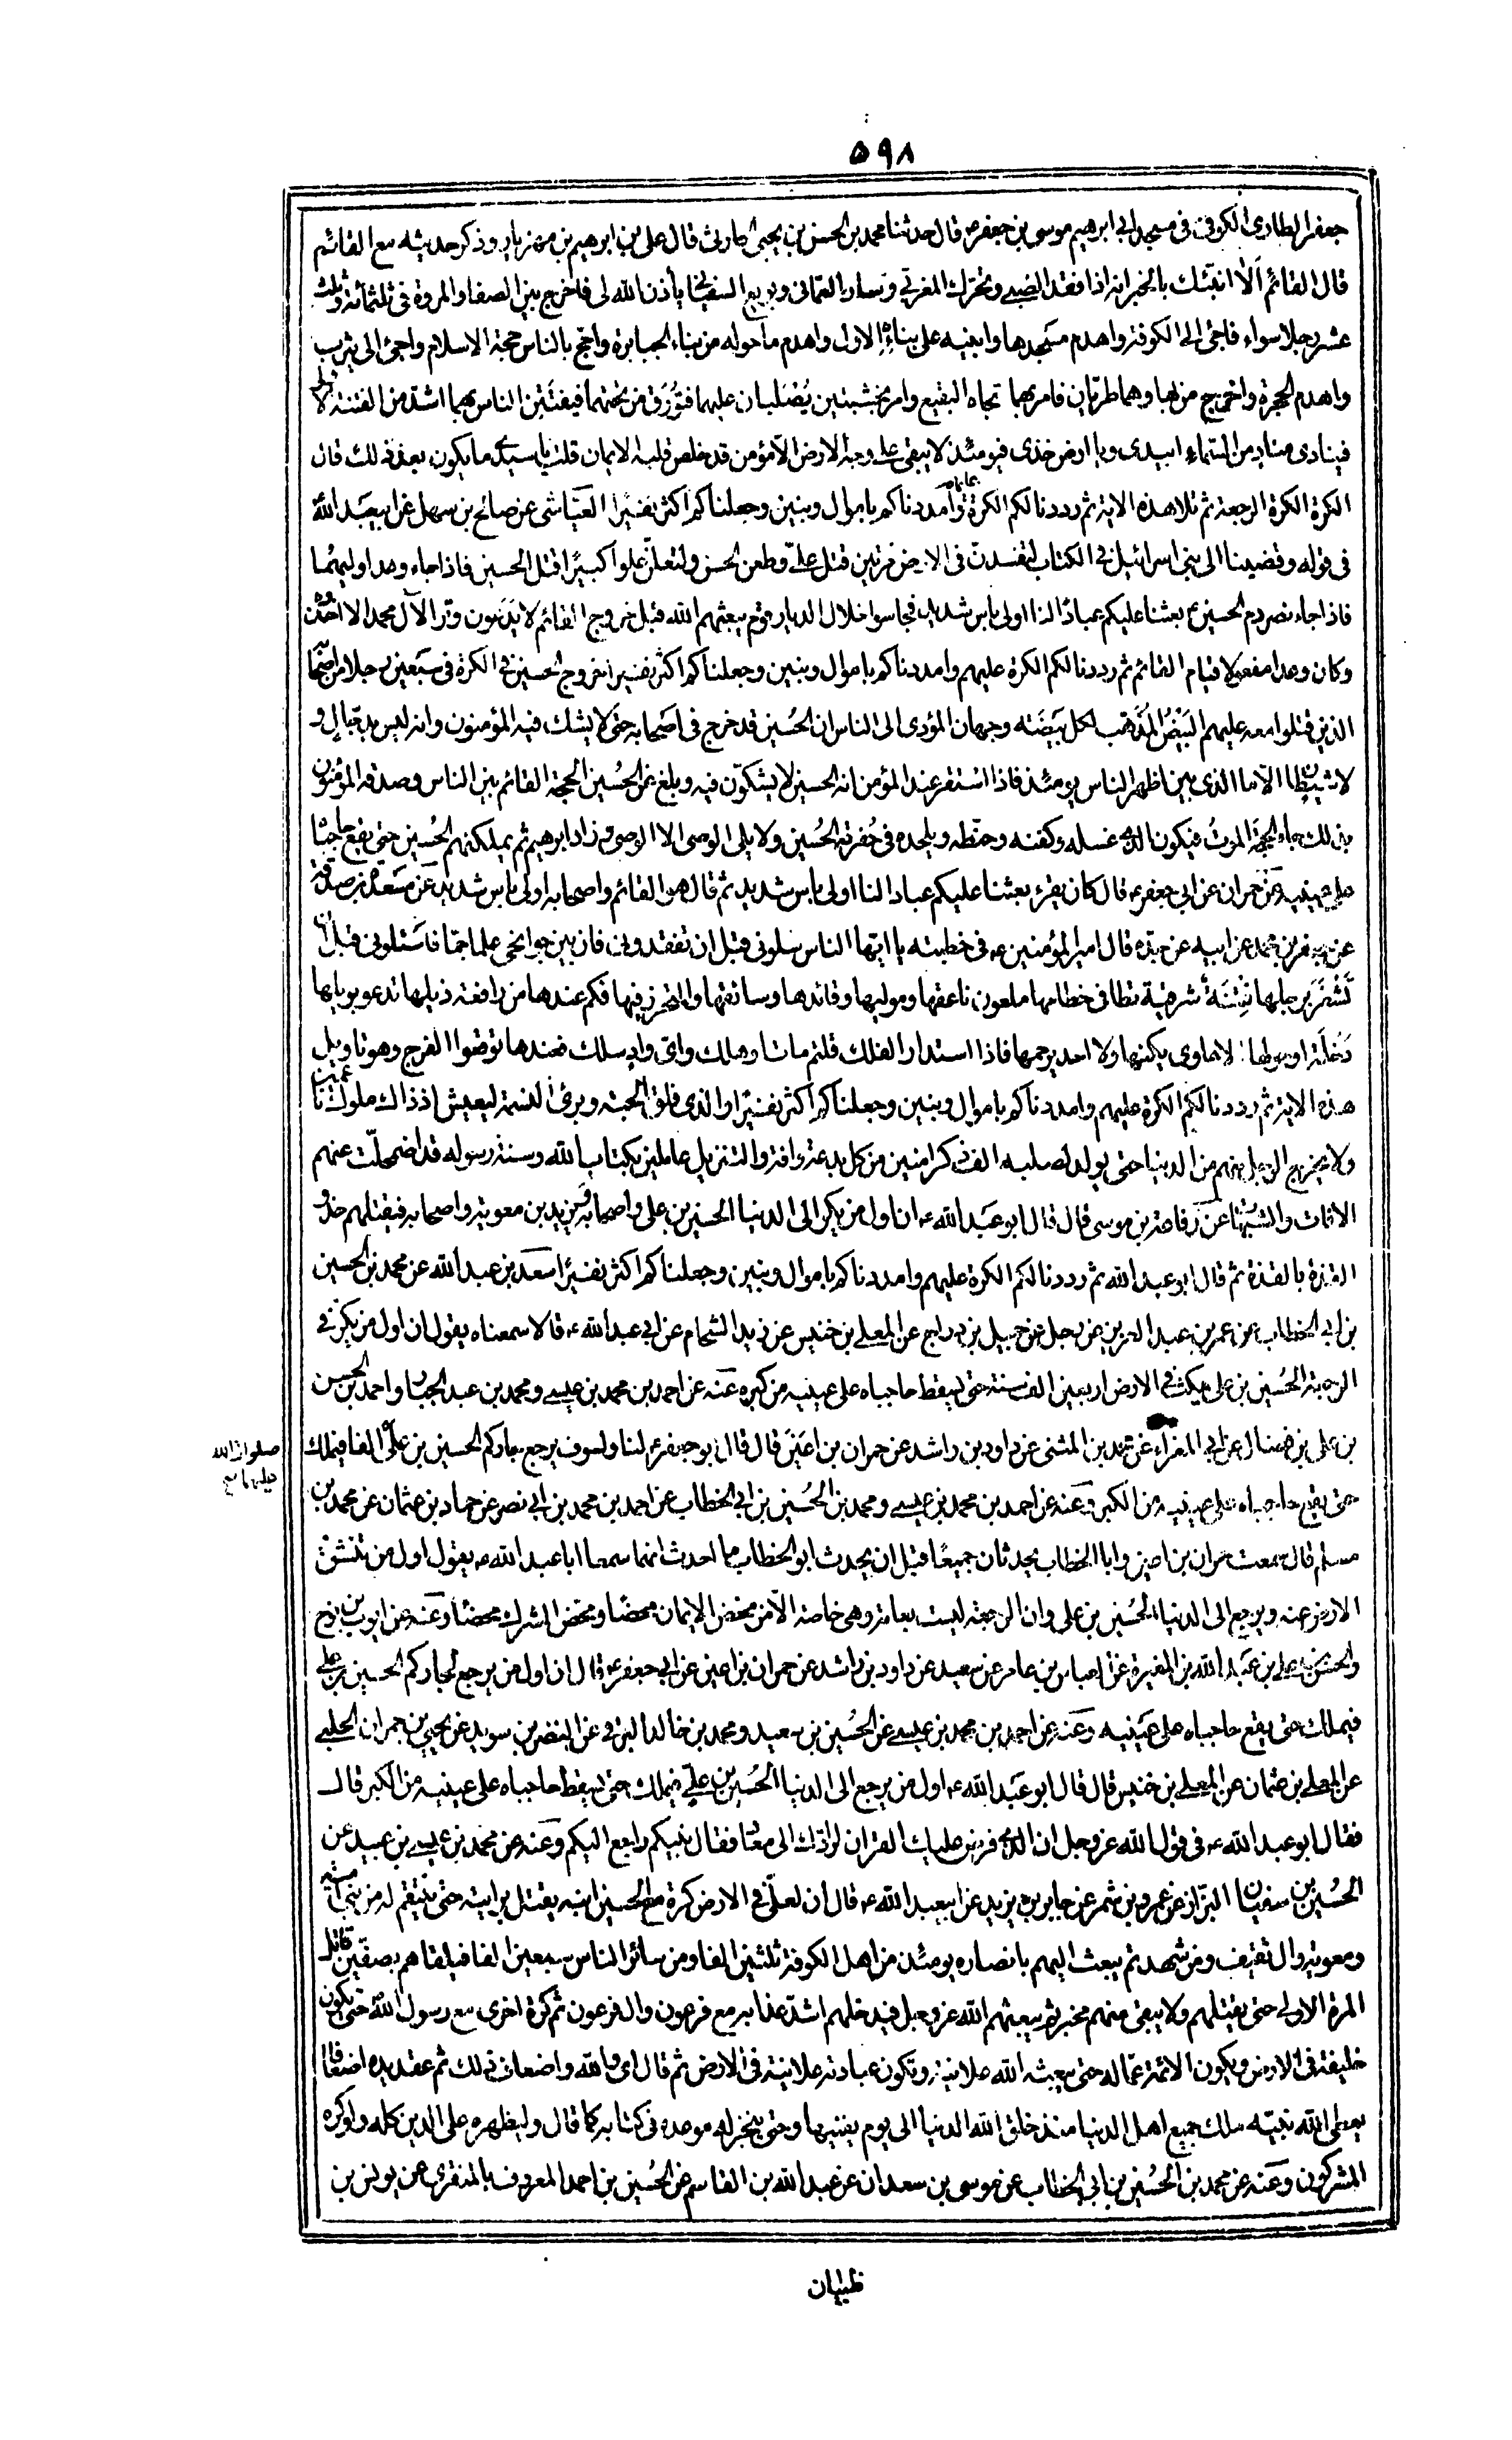 ٥٩٨
جعفر الطاری الکوفی فی مسجد ابی ابرهیم موسی بن جعفر ع قال حدثنا محمد بن الحسن بن یحیی الحارثی قال علی بن ابرهیم بن مهزیار وذکر حدیثه مع القائم
قال القائم الا انبئك بالخبر انه اذا فقد الصبی وتحرك المغربی وسار العمانی وبویع السفیانی یأذن الله لی فاخرج بین الصفا والمروة فی ثلثمائة وثلث
عشر رجلا سواء فاجئ الی الکوفة واهدم مسجدها وابنیه علی بنائه الاول واهدم ما حوله من بناء الجبابرة واحج بالناس حجة الاسلام واجئ الی یثرب
واهدم الحجرة واخرج من بها وهما طریان فامر بهما تجاه البقیع وامر بخشبتین یصلبان علیهما فتورق من تحتهما فیفتتن الناس بهما اشد من الفتنة الاولی
فینادی مناد من السماء ابیدی ویا ارض خذی فیومئذ لا یبقی علی وجه الارض الا مؤمن قد خلص قلبه الایمان قلت یا سیدی ما یکون بعد ذلك قال
الکرة الکرة الرجعة ثم تلا هذه الایة ثم رددنا لکم الکرة علیهم وامددناکم باموال وبنین وجعلناکم اکثر نفیرا العیاشی عن صالح بن سهل عن ابیعبد الله
فی قوله وقضینا الی بنی اسرائیل فی الکتاب لتفسدن فی الارض مرتین قتل علی وطعن الحسن ولتعلن علوا کبیرا قتل الحسین فاذا جاء وعد اولیهما
فاذا جاء نصر دم الحسین ع بعثنا علیکم عبادا لنا اولی باس شدید فجاسوا خلال الدیار قوم یبعثهم الله قبل خروج القائم لا یدعون وترا لآل محمد الا اخذوه
وکان وعدا مفعولا قیام القائم ثم رددنا لکم الکرة علیهم وامددناکم باموال وبنین وجعلناکم اکثر نفیرا خروج الحسین فی الکرة فی سبعین رجلا من اصحابه
الذین قتلوا معه علیهم البیض المذهب لکل بیضة وجهان المؤدی الی الناس ان الحسین قد خرج فی اصحابه حتی لا یشك فیه المؤمنون وانه لیس بدجال و
لا شیطان الامام الذی بین اظهر الناس یومئذ فاذا استقر عند المؤمن انه الحسین لا یشکون فیه وبلغ عن الحسین الحجة القائم بین الناس وصدقه المؤمنون
بذلك جاء الحجة الموت فیکون الذی غسله وکفنه وحنطه ویلحده فی حفرته الحسین ولا یلی الوصی الا الوصی وزاد ابرهیم ثم یملکهم الحسین حتی یقع حاجباه
علی عینیه عن حمران عن ابی جعفر ع قال کان یقرء بعثنا علیکم عبادا لنا اولی باس شدید ثم قال هو القائم واصحابه اولی باس شدید عن مسعدة بن صدقة
عن جعفر بن محمد عن ابیه عن جده قال امیر المؤمنین ع فی خطبته یا ایها الناس سلونی قبل ان تفقدونی فان بین جوانحی علما جما فاسئلونی قبل ان
تشغر برجلها فتنة شرقیة تطا فی خطامها ملعون ناعقها ومولیها وقائدها وسائقها والمتحرز فیها فکم عندها من رافعة ذیلها تدعو بویلها
دخلة او حولها لا ماوی یکنها ولا احد یرحمها فاذا استدار الفلك قلتم مات او هلك وای واد سلك فعندها توقعوا الفرج وهو تاویل
هذه الایة ثم رددنا لکم الکرة علیهم وامددناکم باموال وبنین وجعلناکم اکثر نفیرا والذی فلق الحبة وبرئ النسمة لیعیش اذ ذاك ملوك ناعمین
ولا یخرج الرجل منهم من الدنیا حتی یولد لصلبه الف ذکر امنین من کل بدعة وافة والتنزیل عاملین بکتاب الله وسنة رسوله قد اضمحلت عنهم
الافات والشبهات عن رفاعة بن موسی قال قال ابو عبد الله ع ان اول من یکر الی الدنیا الحسین بن علی واصحابه ویزید بن معویة واصحابه فیقتلهم حذو
القذة بالقذة ثم قال ابو عبد الله ثم رددنا لکم الکرة علیهم وامددناکم باموال وبنین وجعلناکم اکثر نفیرا سعد بن عبد الله عن محمد بن الحسین
بن ابی الخطاب عن عمر بن عبد العزیز عن رجل عن جمیل بن دراج عن المعلی بن خنیس عن زید الشحام عن ابی عبد الله ع قالا سمعناه یقول ان اول من یکر فی
الرجعة الحسین بن علی یمکث فی الارض اربعین الف سنة حتی یسقط حاجباه علی عینیه من کبره عنه عن احمد بن محمد بن عیسی ومحمد بن عبد الجبار واحمد بن الحسن
بن علی بن فضال عن ابی المغراء عن حمید بن المثنی عن داود بن راشد عن حمران بن اعین قال قال ابو جعفر ع لنا ولسوف یرجع جارکم الحسین بن علی الفا فیملك
صلوات الله علیهما
حتی یقع حاجباه علی عینیه من الکبر وعنه عن احمد بن محمد بن عیسی ومحمد بن الحسین بن ابی الخطاب عن احمد بن محمد بن ابی نصر عن حماد بن عثمان عن محمد بن
مسلم قال سمعت حمران بن اعین وابا الخطاب یحدثان جمیعا قبل ان یحدث ابو الخطاب ما احدث انهما سمعا ابا عبد الله ع یقول اول من تنشق
الارض عنه ویرجع الی الدنیا الحسین بن علی وان الرجعة لیست بعامة وهی خاصة الا من محض الایمان محضا ومحض الشرك محضا وعنه عن ایوب بن نوح
والحسن بن علی بن عبد الله بن المغیرة عن العباس بن عامر عن سعید عن داود بن راشد عن حمران بن اعین عن ابی جعفر ع قال ان اول من یرجع لجارکم الحسین بن علی
فیملك حتی یقع حاجباه علی عینیه وعنه عن احمد بن محمد بن عیسی عن الحسین بن سعید ومحمد بن خالد البرقی عن النضر بن سوید عن یحیی بن عمران الحلبی
عن المعلی بن عثمان عن المعلی بن خنیس قال قال ابو عبد الله ع اول من یرجع الی الدنیا الحسین بن علی فیملك حتی یسقط حاجباه علی عینیه من الکبر قال
فقال ابو عبد الله ع فی قول الله عز وجل ان الذی فرض علیك القران لرادك الی معاد فقال نبیکم راجع الیکم وعنه عن محمد بن عیسی بن عبید عن
الحسین بن سفیان البزاز عن عمرو بن شمر عن جابر بن یزید عن ابیعبد الله ع قال ان لعلی فی الارض کرة مع الحسین ابنه یقبل برایته حتی ینتقم له من بنی امیة
ومعویة وال ثقیف ومن شهد ثم یبعث الیهم بانصاره یومئذ من اهل الکوفة ثلثین الفا ومن سائر الناس سبعین الفا فیلقاهم بصفین قاتل
المرة الاولی حتی یقتلهم ولا یبقی منهم مخبر ثم یبعثهم الله عز وجل فیدخلهم اشد عذابه مع فرعون وال فرعون ثم کرة اخری مع رسول الله حتی یکون
خلیفة فی الارض ویکون الائمة عماله حتی یبعثه الله علانیة وتکون عبادته علانیة فی الارض ثم قال ای والله واضعاف ذلك ثم عقد بیده اضعافا
یعطی الله نبیه ملك جمیع اهل الدنیا منذ خلق الله الدنیا الی یوم یفنیها وحتی ینجز له موعده فی کتابه کما قال ولیظهره علی الدین کله ولو کره
المشرکون وعنه عن محمد بن الحسین بن ابی الخطاب عن موسی بن سعدان عن عبد الله بن القاسم عن الحسین بن احمد المعروف بالمنقری عن یونس بن
ظبیان